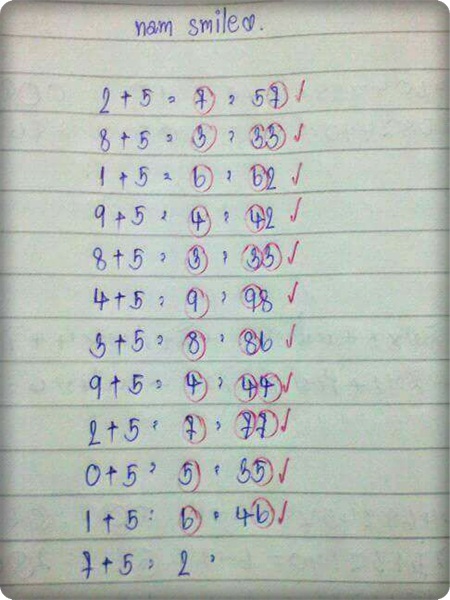 nam smile♡.
2 + 5 = 7 = 57 ✓
8 + 5 = 3 = 33 ✓
1 + 5 = 6 = 62 ✓
9 + 5 = 4 = 42 ✓
8 + 5 = 3 = 33 ✓
4 + 5 = 9 = 98 ✓
3 + 5 = 8 = 86 ✓
9 + 5 = 4 = 44 ✓
2 + 5 = 7 = 77 ✓
0 + 5 = 5 = 35 ✓
1 + 5 = 6 = 46 ✓
7 + 5 = 2 =